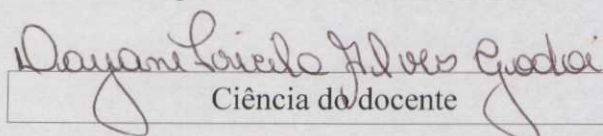 Dayani Priscila Alves Godoi
Ciência do docente